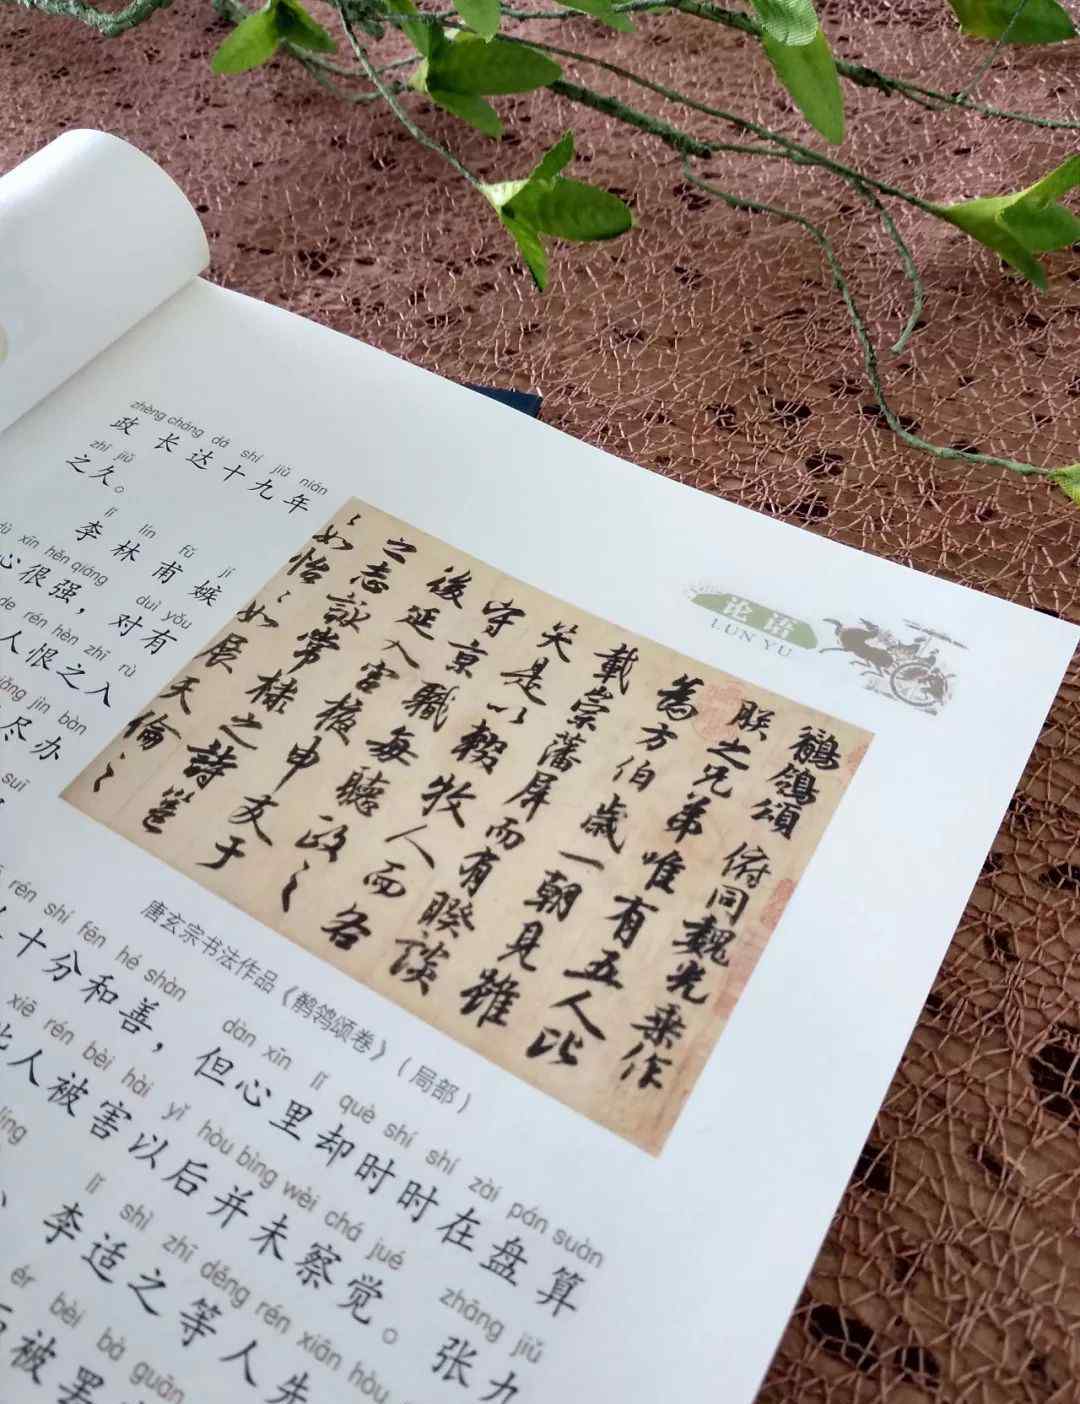 论语
LUN YU
zhèng cháng dá shí jiǔ nián
政长达十九年
zhī jiǔ
之久。
lǐ lín fǔ jí
李林甫嫉
xīn hěn qiáng duì yǒu
心很强，对有
de rén hèn zhī rù
人恨之入
jìn bàn
尽办
suī
鶺鴒頌 俯同魏光乘作
朕之兄弟唯有五人比
為方伯歲一朝見雖
載崇藩屏而有睽談
笑是以輟牧人而各
守京職每聽政之
後延入宫掖申友于
之志詠常棣之詩邕
邕如怡怡如展天倫之
唐玄宗书法作品《鹡鸰颂卷》（局部）
rén shí fēn hé shàn dàn xīn lǐ què shí shí zài pán suàn
十分和善，但心里却时时在盘算
xiē rén bèi hài yǐ hòu bìng wèi chá jué zhāng jiǔ
些人被害以后并未察觉。张九
líng lǐ shì zhī děng rén xiān hòu
、李适之等人先
ér bèi bà guān
而被罢